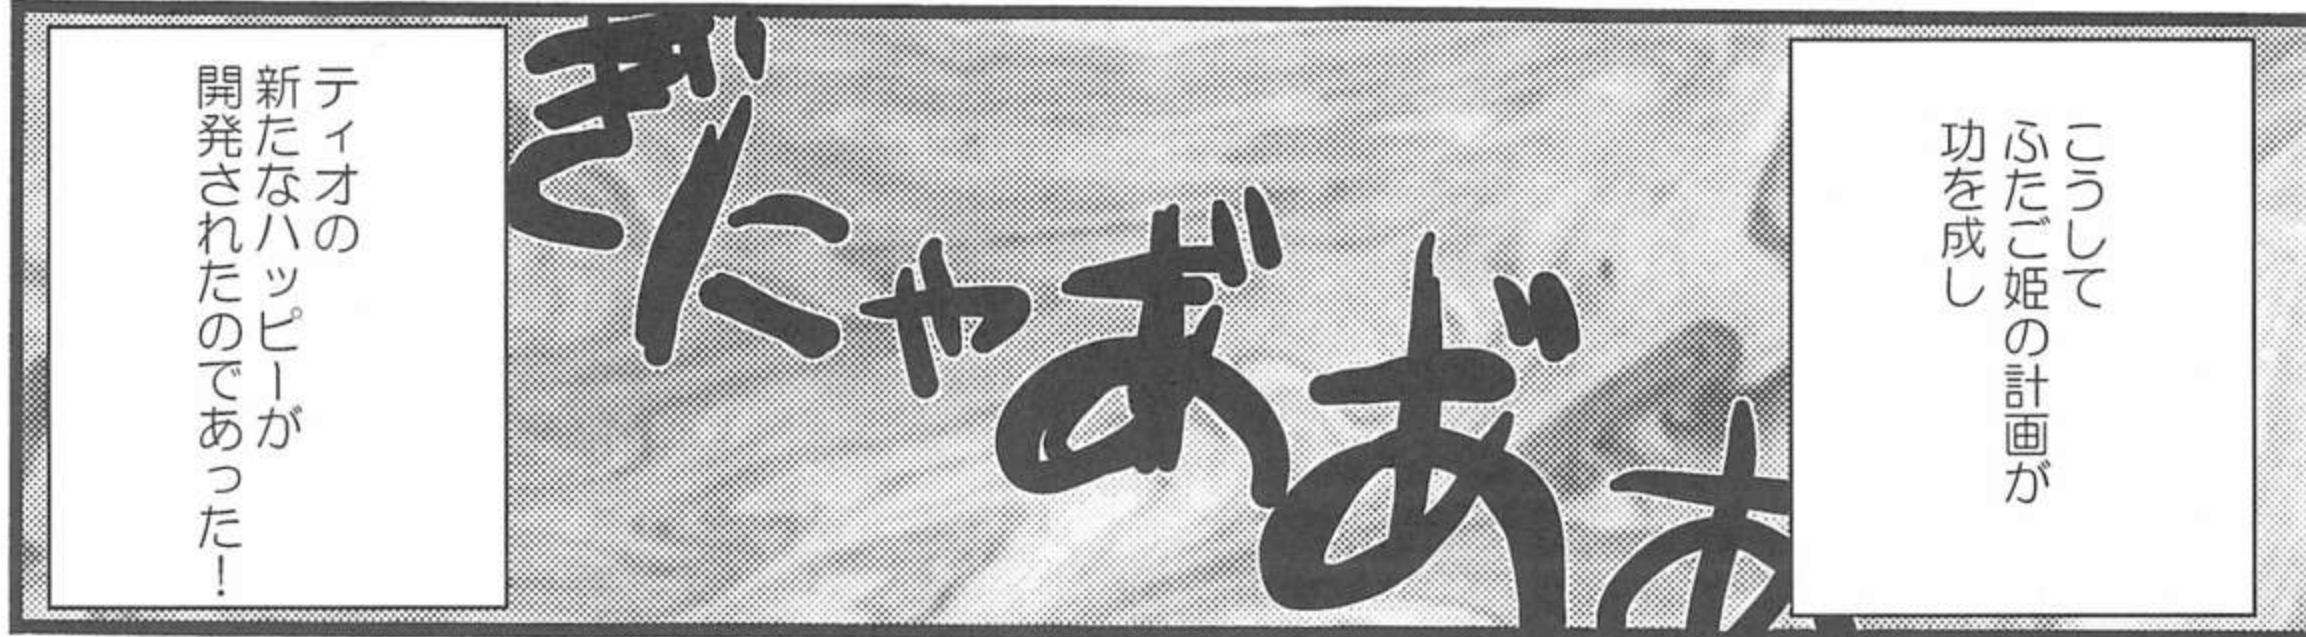 こうして
ふたご姫の計画が
功を成し
ぎにゃあ゛あ゛あ
ティオの
新たなハッピーが
開発されたのであった！